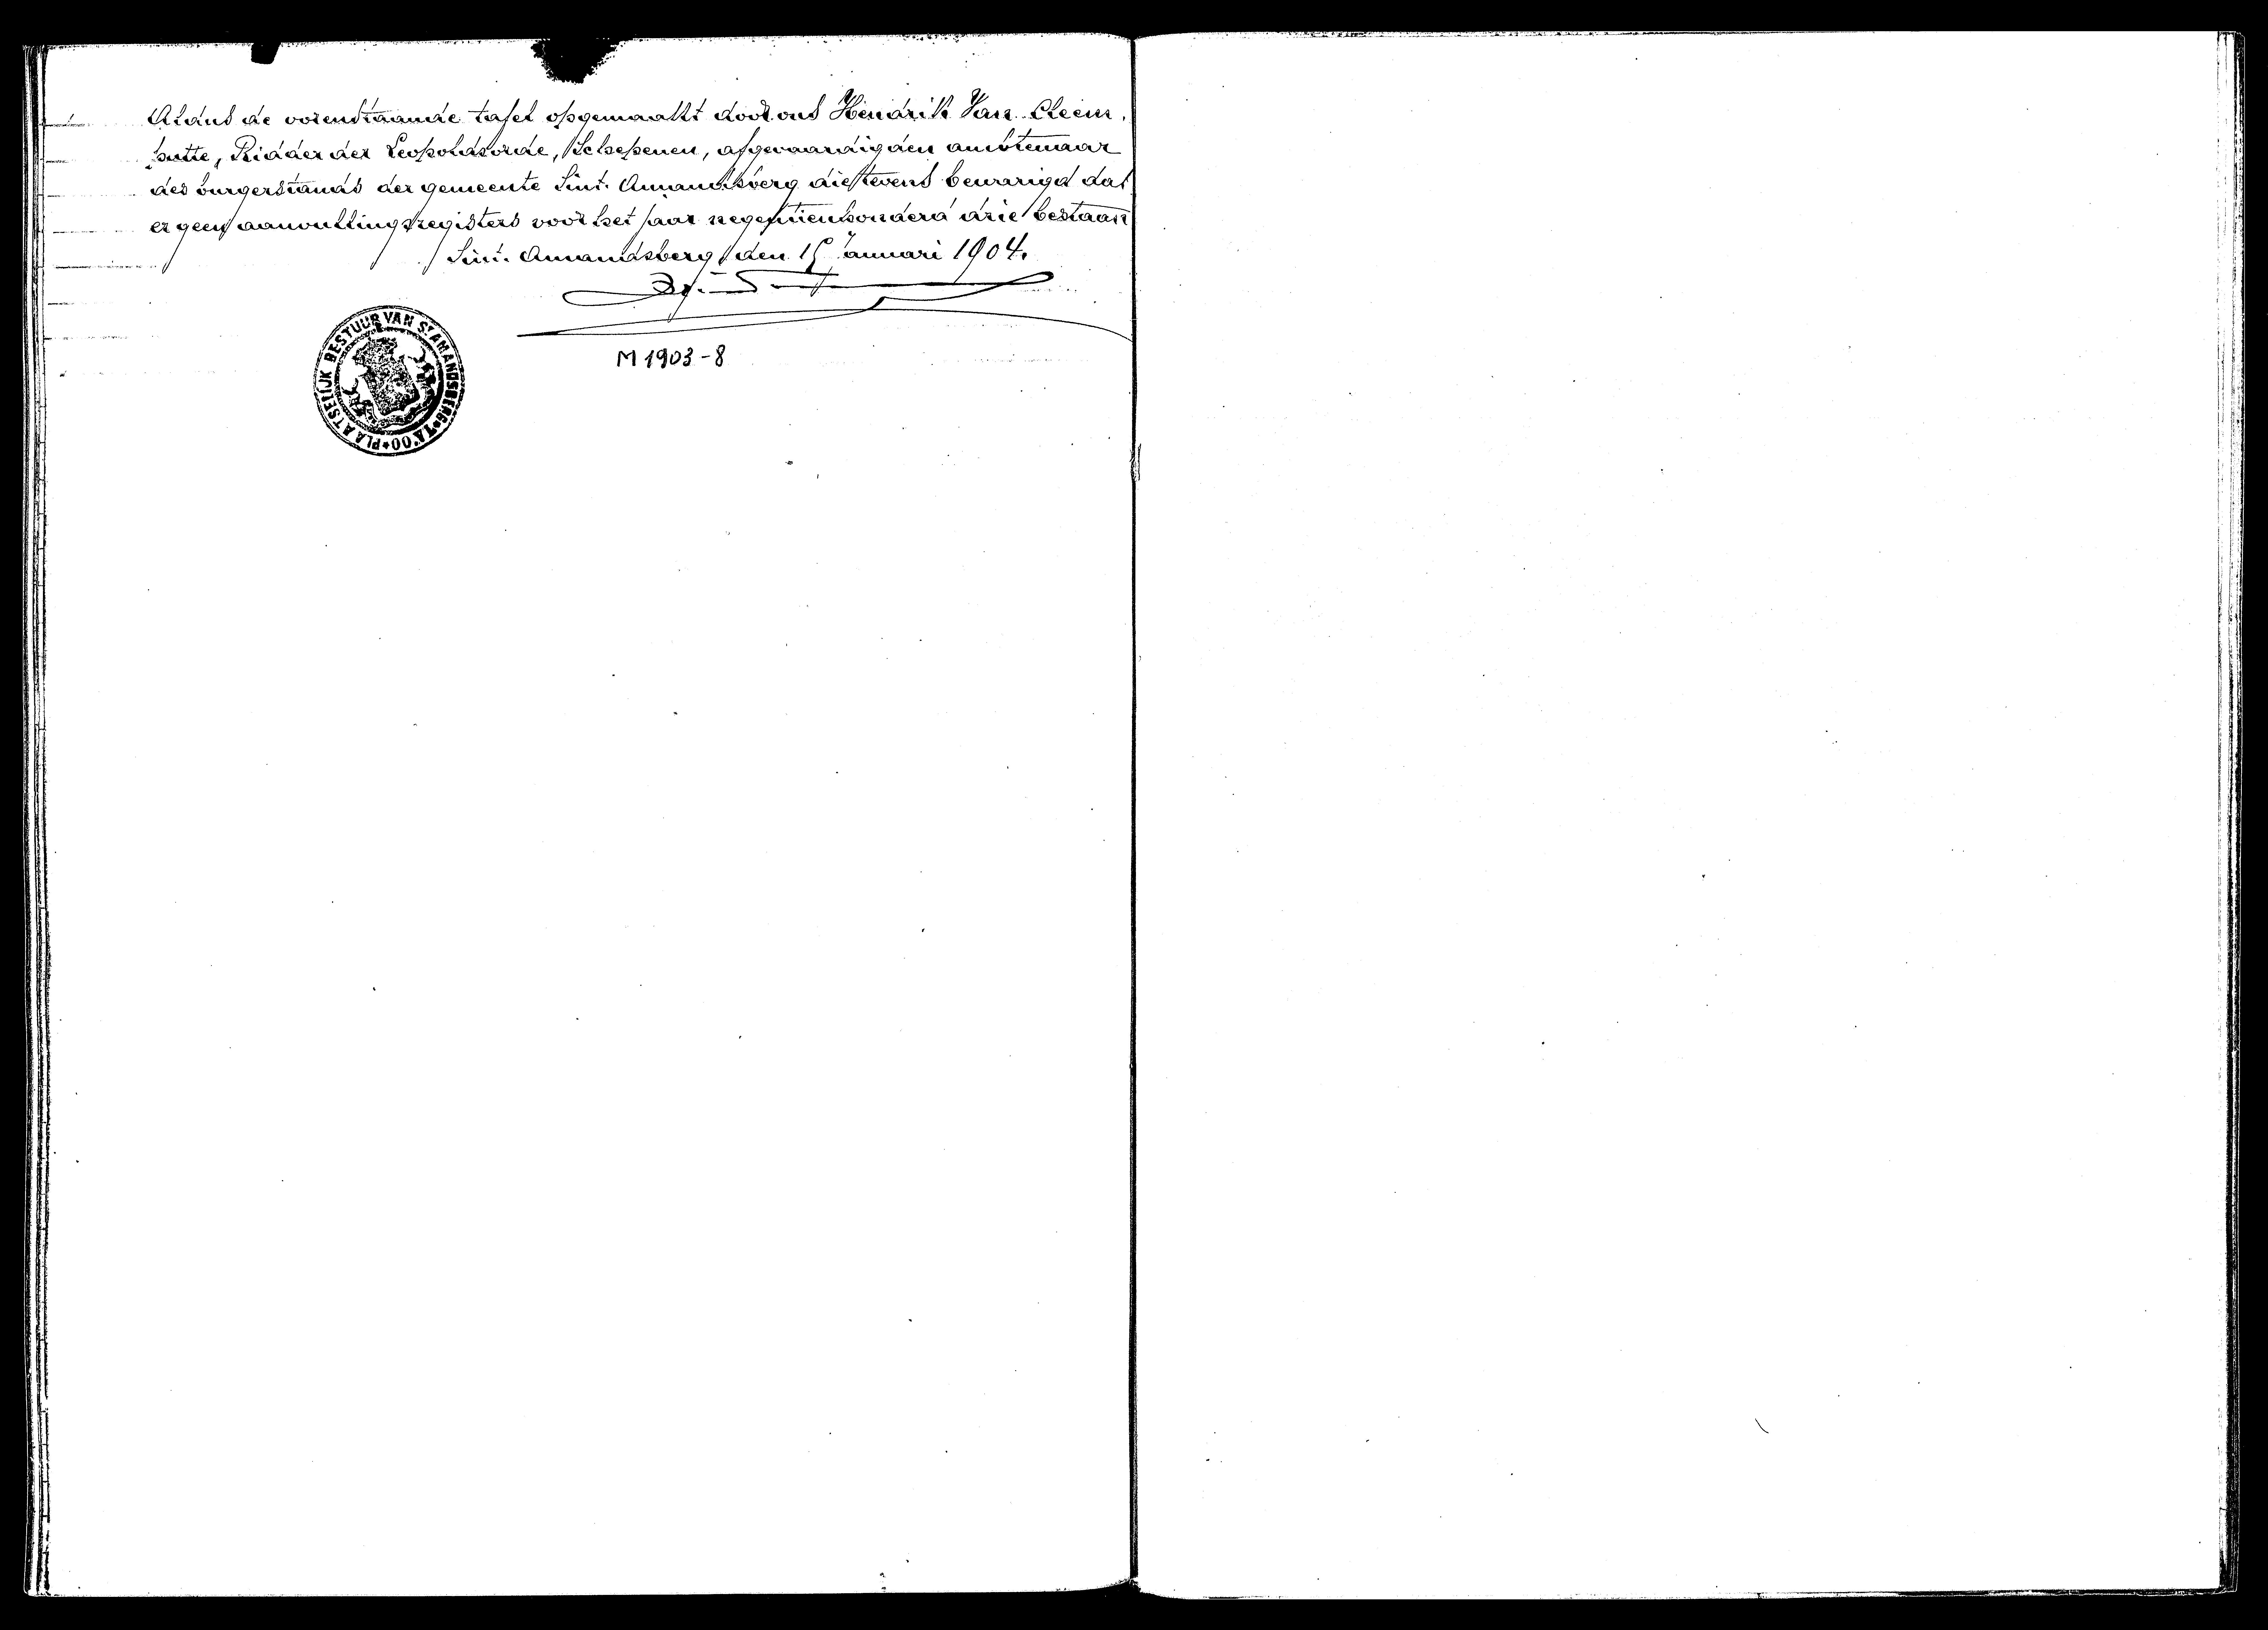 Aldus de vorenstaande tafel opgemaakt door ons Hendrik Van Cleem
putte, Ridder der Leopoldsorde, Schepenen, afgevaardigden ambtenaar
des burgerstands der gemeente Sint. Amandsberg die tevens bevestigd dat
er geen aanvullingsregisters voor het jaar negentienhonderd drie bestaan
Sint. Amandsberg, den 15 Januari 1904.
PLAATSELIJK BESTUUR VAN ST AMANDSBERG
M 1903-8